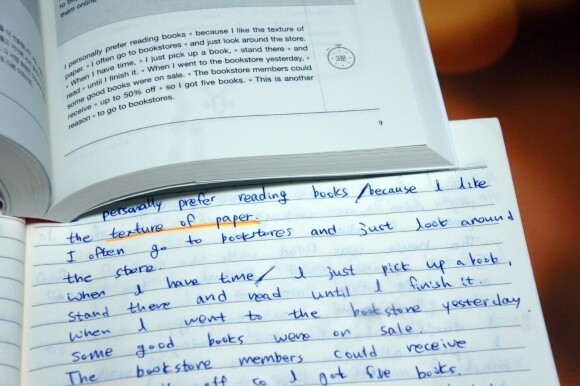 them online
I personally prefer reading books • because I like the texture of
paper. • I often go to bookstores • and just look around the store.
• When I have time, • I just pick up a book, • stand there • and
read • until I finish it. • When I went to the bookstore yesterday, •
some good books were on sale. • The bookstore members could
receive • up to 50% off • so I got five books. • This is another
reason • to go to bookstores.
9
personally prefer reading books / because I like
the texture of paper.
I often go to bookstores and just look around
the store.
When I have time / I just pick up a book,
stand there and read until I finish it.
When I went to the bookstore yesterday
some good books were on sale.
The bookstore members could receive
off so I got five books.